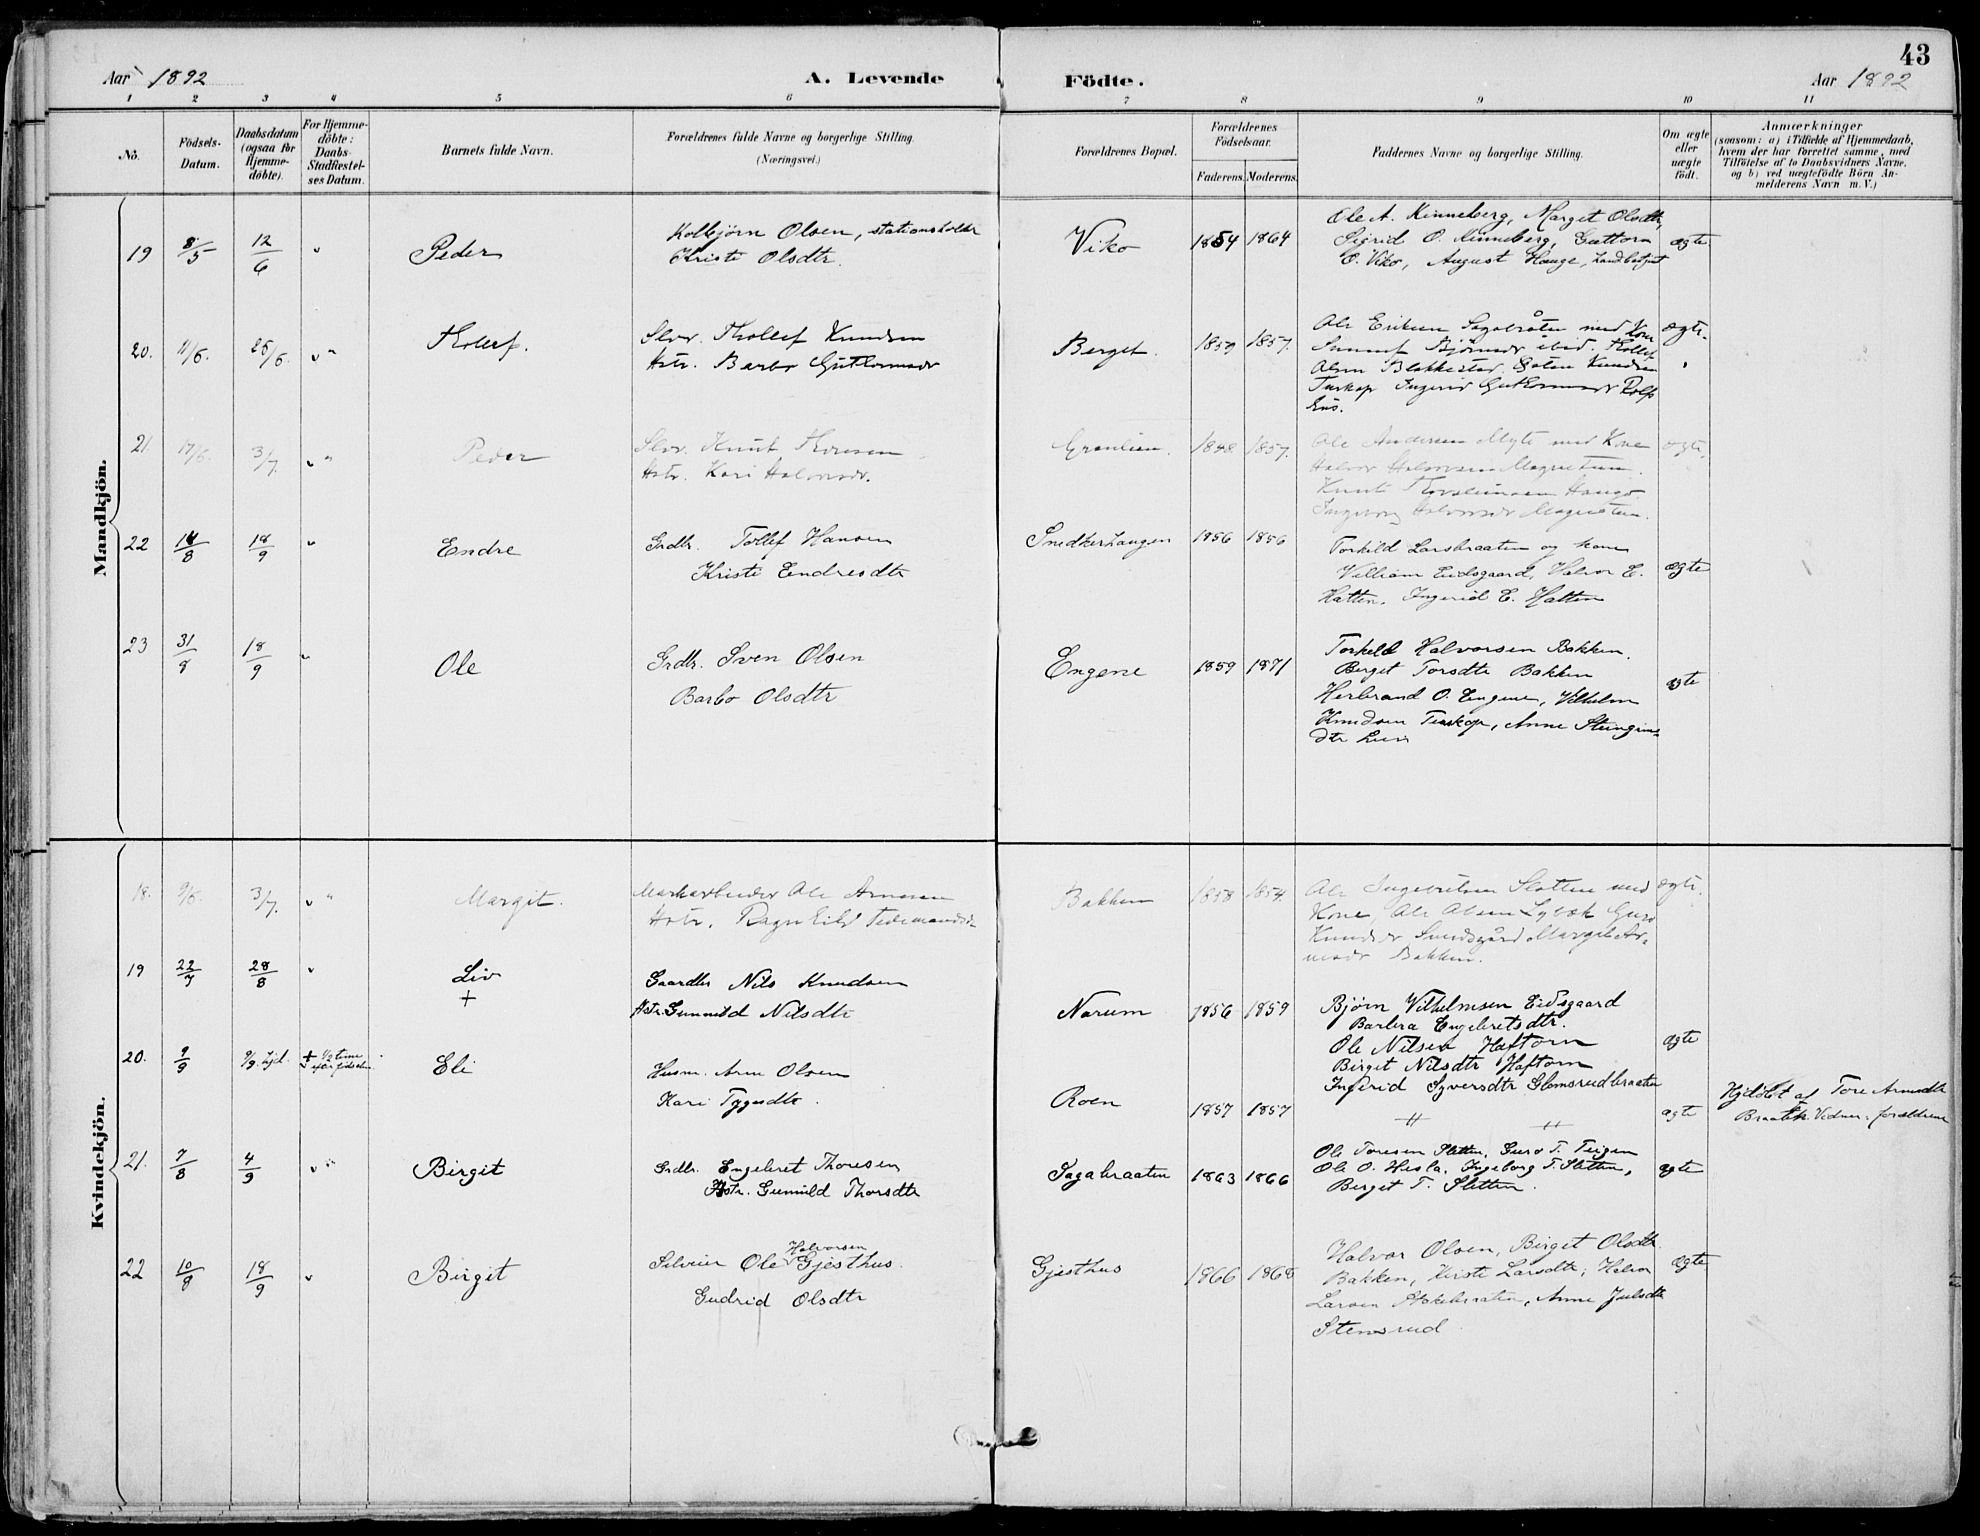 43
Aar 1892
A. Levende
Födte.
Aar 1892
1 2 3 4 5 6 7 8 9 10 11
No.
Födsels-Datum.
Daabsdatum (ogsaa for Hjemme-döbte).
For Hjemme-döbte: Daabs-Stadfæstel-ses Datum.
Barnets fulde Navn.
Forældrenes fulde Navne og borgerlige Stilling.
(Næringsvei.)
Forældrenes Bopæl.
Forældrenes Födselsaar.
Faderens. Moderens.
Faddernes Navne og borgerlige Stilling.
Om ægte eller uægte födt.
Anmærkninger
(saasom: a) i Tilfælde af Hjemmedaab,
hvem der har forrettet samme, med
Tilföielse af to Daabsvidners Navne,
og b) ved uægtefödte Börn An-
melderens Navn m. V.)
Mandkjön.
19 8/5 12/6 " Peder
Kolbjörn Olsen, stationsholder
Kristi Olsdtr.
Viko 1854 1864
Ole A. Kinneberg, Marget Olsdtr,
Sigrid O. Kinneberg, Guttorm
O. Viko, August Hauge,
ægte
20. 11/6. 26/6. " Tholleif.
Slvr. Thollef Knudsen
Hstr. Barbo Guttormsdr
Berget. 1859 1857.
Ole Eriksen Sagabråten med Kone
Bjørnsdr ibid. Thollef
Olsen Blakkestad Knudsen
Ingerid Guttormsdr Rolfs
hus.
ægte.
21. 17/6. 3/7. " Peder
Slvr. Knut Thoresen
Hstr. Kari Halvorsdr.
Grønlien. 1848 1857.
Ole Andersen Myte med Kone
Halvor Halvorsen
Knut Thorsteinsen Hauge
Ingeborg Halvorsdr
ægte.
22 14/8 18/9 " Endre
Grdbr. Tollef Hansen
Kristi Endresdtr
Snedkerhaugen 1856 1856
Torkild Larsbraaten og kone
Villiam Eidsgaard, Halvor E.
Hatten. Ingerid E. Hatten
ægte
23 31/8 18/9 " Ole
Grdbr. Sven Olsen
Barbo Olsdtr
Engene 1859 1871
Torkeld Halvorsen Bakken.
Berget Torsdtr Bakken
Herbrand O. Engene, Vilhelm
Knudsen Tuskop, Anne Steingrims-
dtr
ægte
Kvindekjön.
18. 9/6. 3/7. " Margit.
Markarbeider Ole Arnesen
Hstr. Ragnhild Tidemandsdr
Bakken 1858 1854.
Ole Ingebretsen Sletten med
Kone, Ole Olsen Guro
Knudsdr Margit Ar-
nesdr Bakken.
ægte.
19 22/7 28/8 " Liv
+
Gaardbr Nils Knudsen
Hstr. Gunnild Nilsdtr
Narum 1856 1859
Bjørn Vilhelmsen Eidsgaard
Barbra Engebretsdtr.
Ole Nilsen Haftorn
Birget Nilsdtr Haftorn
Ingerid Syversdtr Glomsrudbraaten
ægte
20. 9/9 9/9 hjd. + 1/2 time efter fødselen. Eli
Husm. Arne Olsen
Kari
Roen 1857 1857
" "
ægte
Hjdöbt af Tore Arnesdtr
Vidner: forældrene
21. 7/8 4/9 " Birgit
Grdbr. Engebret Thoresen
Hstr. Gunnild Thorsdtr
Sagabraaten 1863 1866
Ole Toresen Sletten, Guro T. Teigen
Ole O. Hesla, Ingeborg T. Sletten,
Berget T. Sletten.
ægte
22 10/8 18/9 " Birgit
Selveier Ole Halvorsen Gjesthus.
Gudrid Olsdtr
Gjesthus 1866 1868
Halvor Olsen, Birget Olsdtr
Bakken, Kirsti Larsdtr, Halvor
Larsen Anne Juelsdtr
Stensrud.
ægte